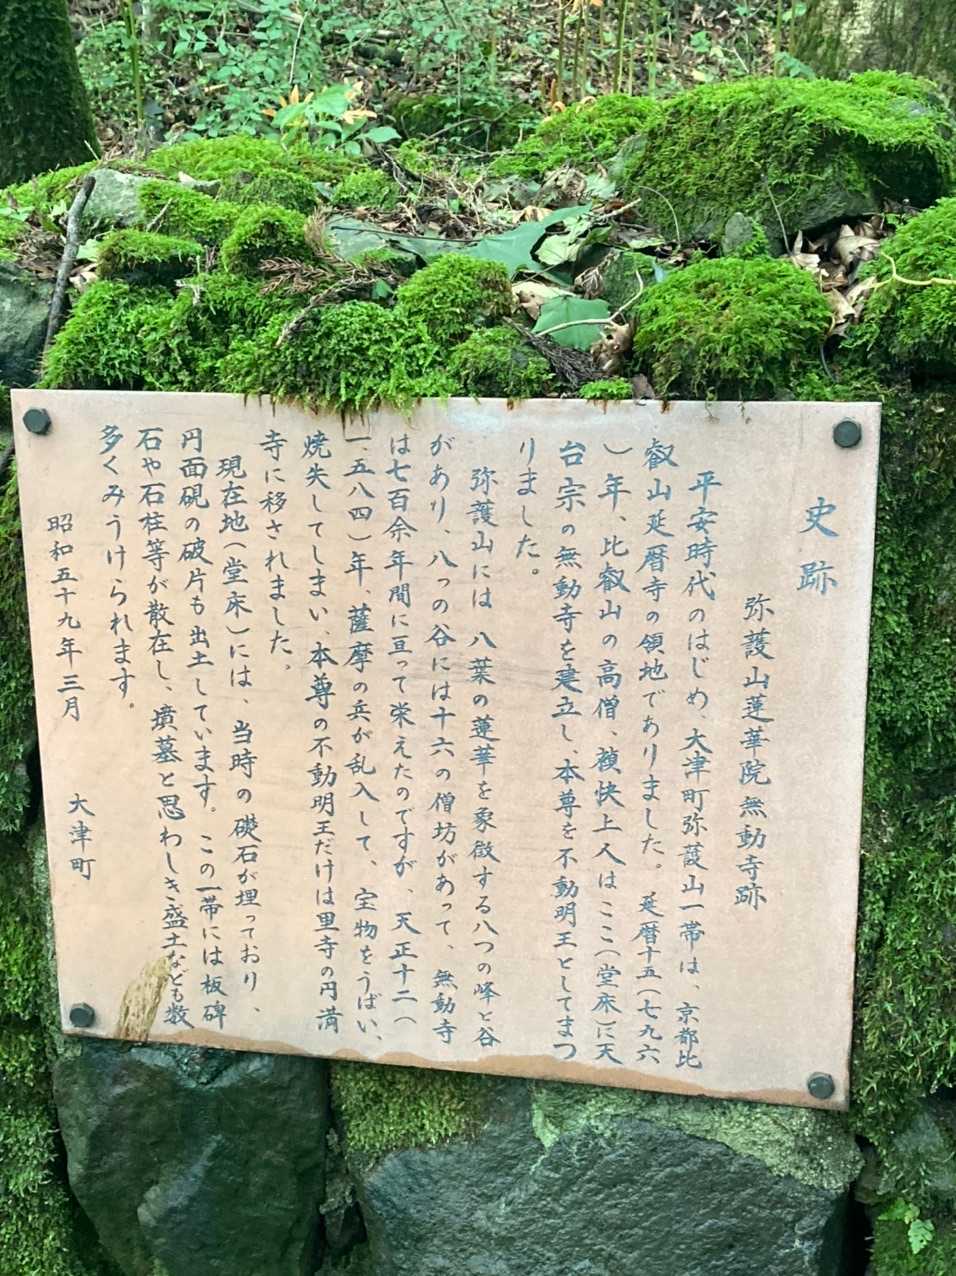 史跡
弥護山蓮華院無動寺跡
平安時代のはじめ、大津町弥護山一帯は、京都比
叡山延暦寺の領地でありました。延暦十五(七九六
)年、比叡山の高僧、禎快上人はここ(堂床)に天
台宗の無動寺を建立し、本尊を不動明王としてまつ
りました。
弥護山には八葉の蓮華を象徴する八つの峰と谷
があり、八っの谷には十六の僧坊があって、無動寺
は七百余年間に亘って栄えたのですが、天正十二(
一五八四)年、薩摩の兵が乱入して、宝物をうばい、
焼失してしまい、本尊の不動明王だけは里寺の円満
寺に移されました。
現在地(堂床)には、当時の礎石が埋っており、
円面硯の破片も出土しています。この一帯には板碑
石や石柱等が散在し、墳墓と思わしき盛土なども数
多くみうけられます。
昭和五十九年三月 大津町